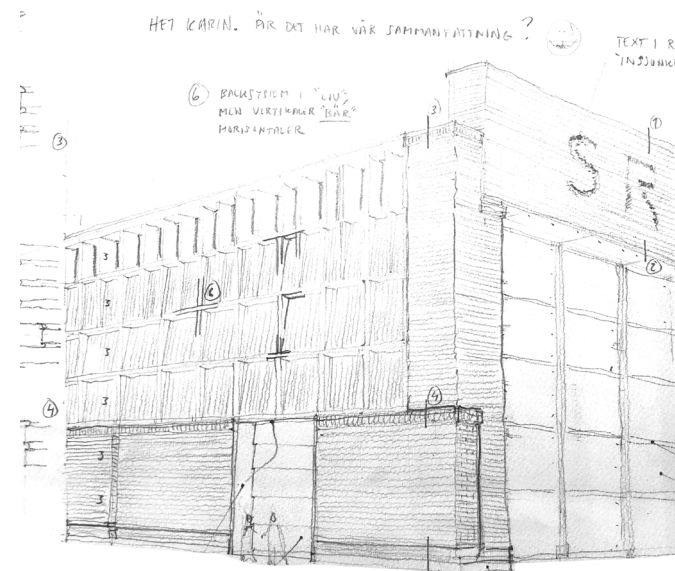 HEJ KARIN. ÄR DET HÄR VÅR SAMMANFATTNING?
TEXT I R
6 BALKSYSTEM I "LIV"
MEN VERTIKALER "BÄR"
HORISONTALER
3
3
1
S R
2
3
6
3
3
4
3
4
3
3